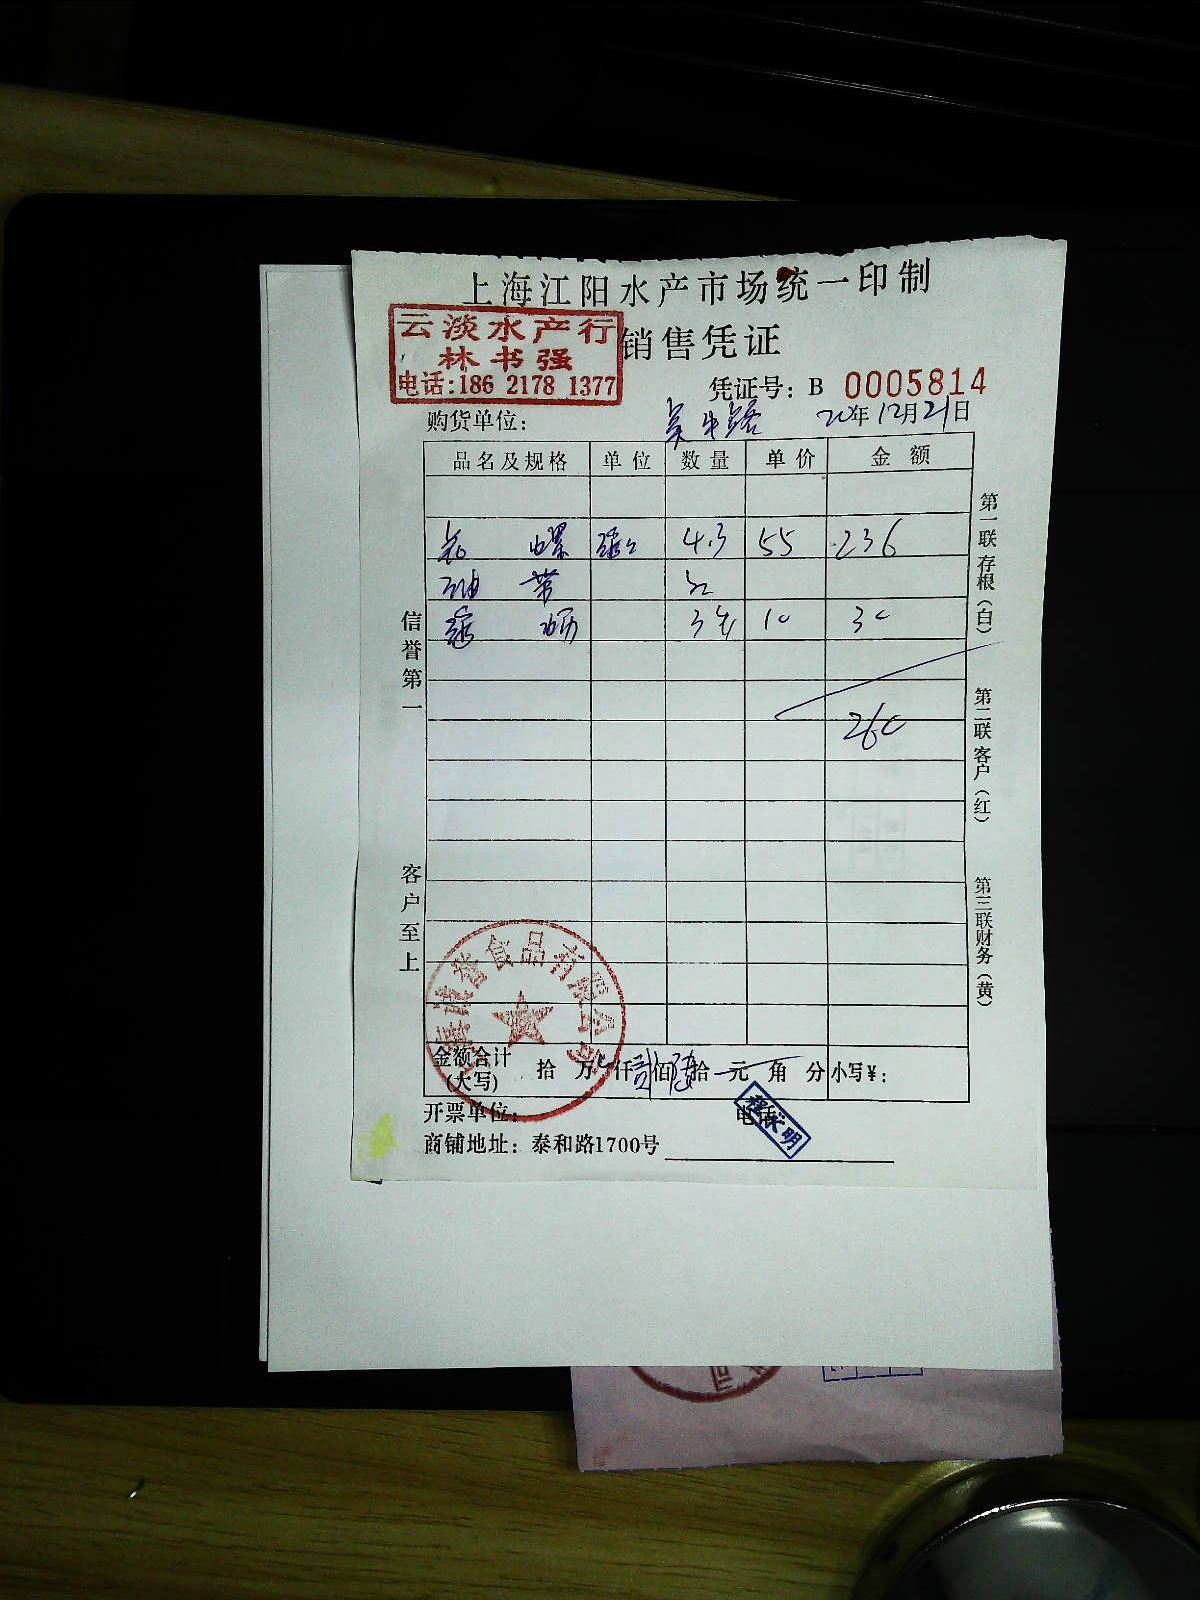 上海江阳水产市场统一印制
云淡水产行
林书强
电话:186 2178 1377
销售凭证
凭证号: B 0005814
购货单位: 年12月21日
品名及规格 单位 数量 单价 金额
螺 4.3 55 236
带
蛎 3 10 30
260
信誉第一
客户至上
第一联存根(白)
第二联客户(红)
第三联财务(黄)
食品有限公司
金额合计(大写) 拾 万 仟 贰 佰 陆 拾 元 角 分 小写¥:
开票单位: 电话
商铺地址: 泰和路1700号